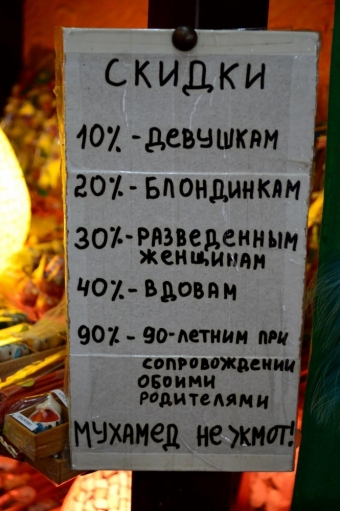 СКИДКИ
10% - ДЕВУШКАМ
20% - БЛОНДИНКАМ
30% - РАЗВЕДЕННЫМ
ЖЕНЩИНАМ
40% - ВДОВАМ
90% - 90-ЛЕТНИМ ПРИ
СОПРОВОЖДЕНИИ
ОБОИМИ
РОДИТЕЛЯМИ
МУХАМЕД НЕ ЖМОТ!